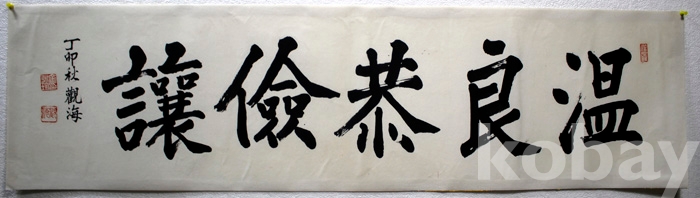 溫良恭儉讓
丁卯秋 觀海
kobay